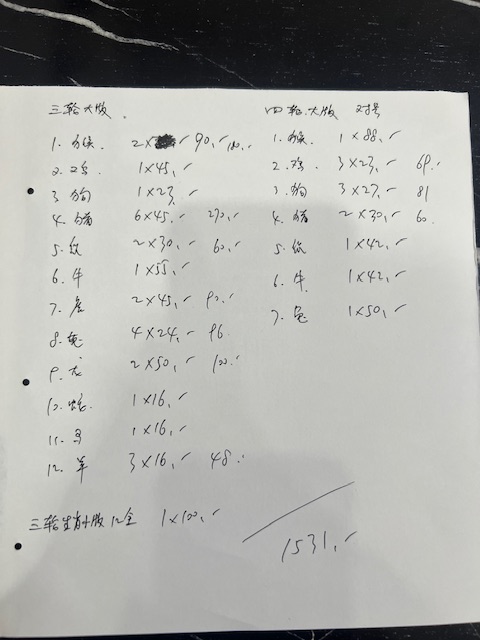 三轮大版.
1. 猴 2× 90,- 100,-
2. 鸡 1×45,-
3 狗 1×23,-
4. 猪 6×45,- 270,-
5. 鼠 2×30,- 60,-
6. 牛 1×55,-
7. 虎 2×45,- 90,-
8. 兔 4×24,- 96
9. 龙 2×50,- 100,-
10. 蛇. 1×16,-
11. 马 1×16,-
12. 羊 3×16,- 48,-
三轮生肖小版 12全 1×100,-
四轮大版 对号
1. 猴 1×88,-
2. 鸡. 3×23,- 69,-
3. 狗 3×27,- 81
4. 猪 2×30,- 60,-
5. 鼠 1×42,-
6. 牛 1×42,-
7. 兔 1×50,-
1531,-